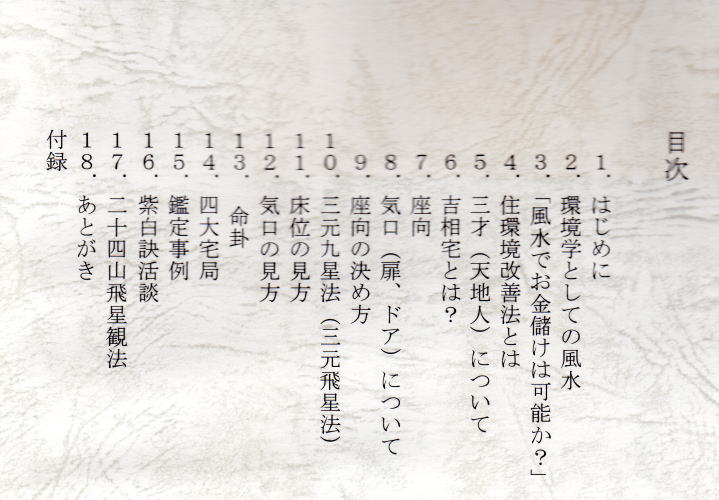 目次
1．はじめに
2．環境学としての風水
3．「風水でお金儲けは可能か？」
4．住環境改善法とは
5．三才（天地人）について
6．吉相宅とは？
7．座向
8．気口（扉、ドア）について
9．座向の決め方
10．三元九星法（三元飛星法）
11．床位の見方
12．気口の見方
13．命卦
14．四大宅局
15．鑑定事例
16．紫白訣活談
17．二十四山飛星観法
18．あとがき
付録